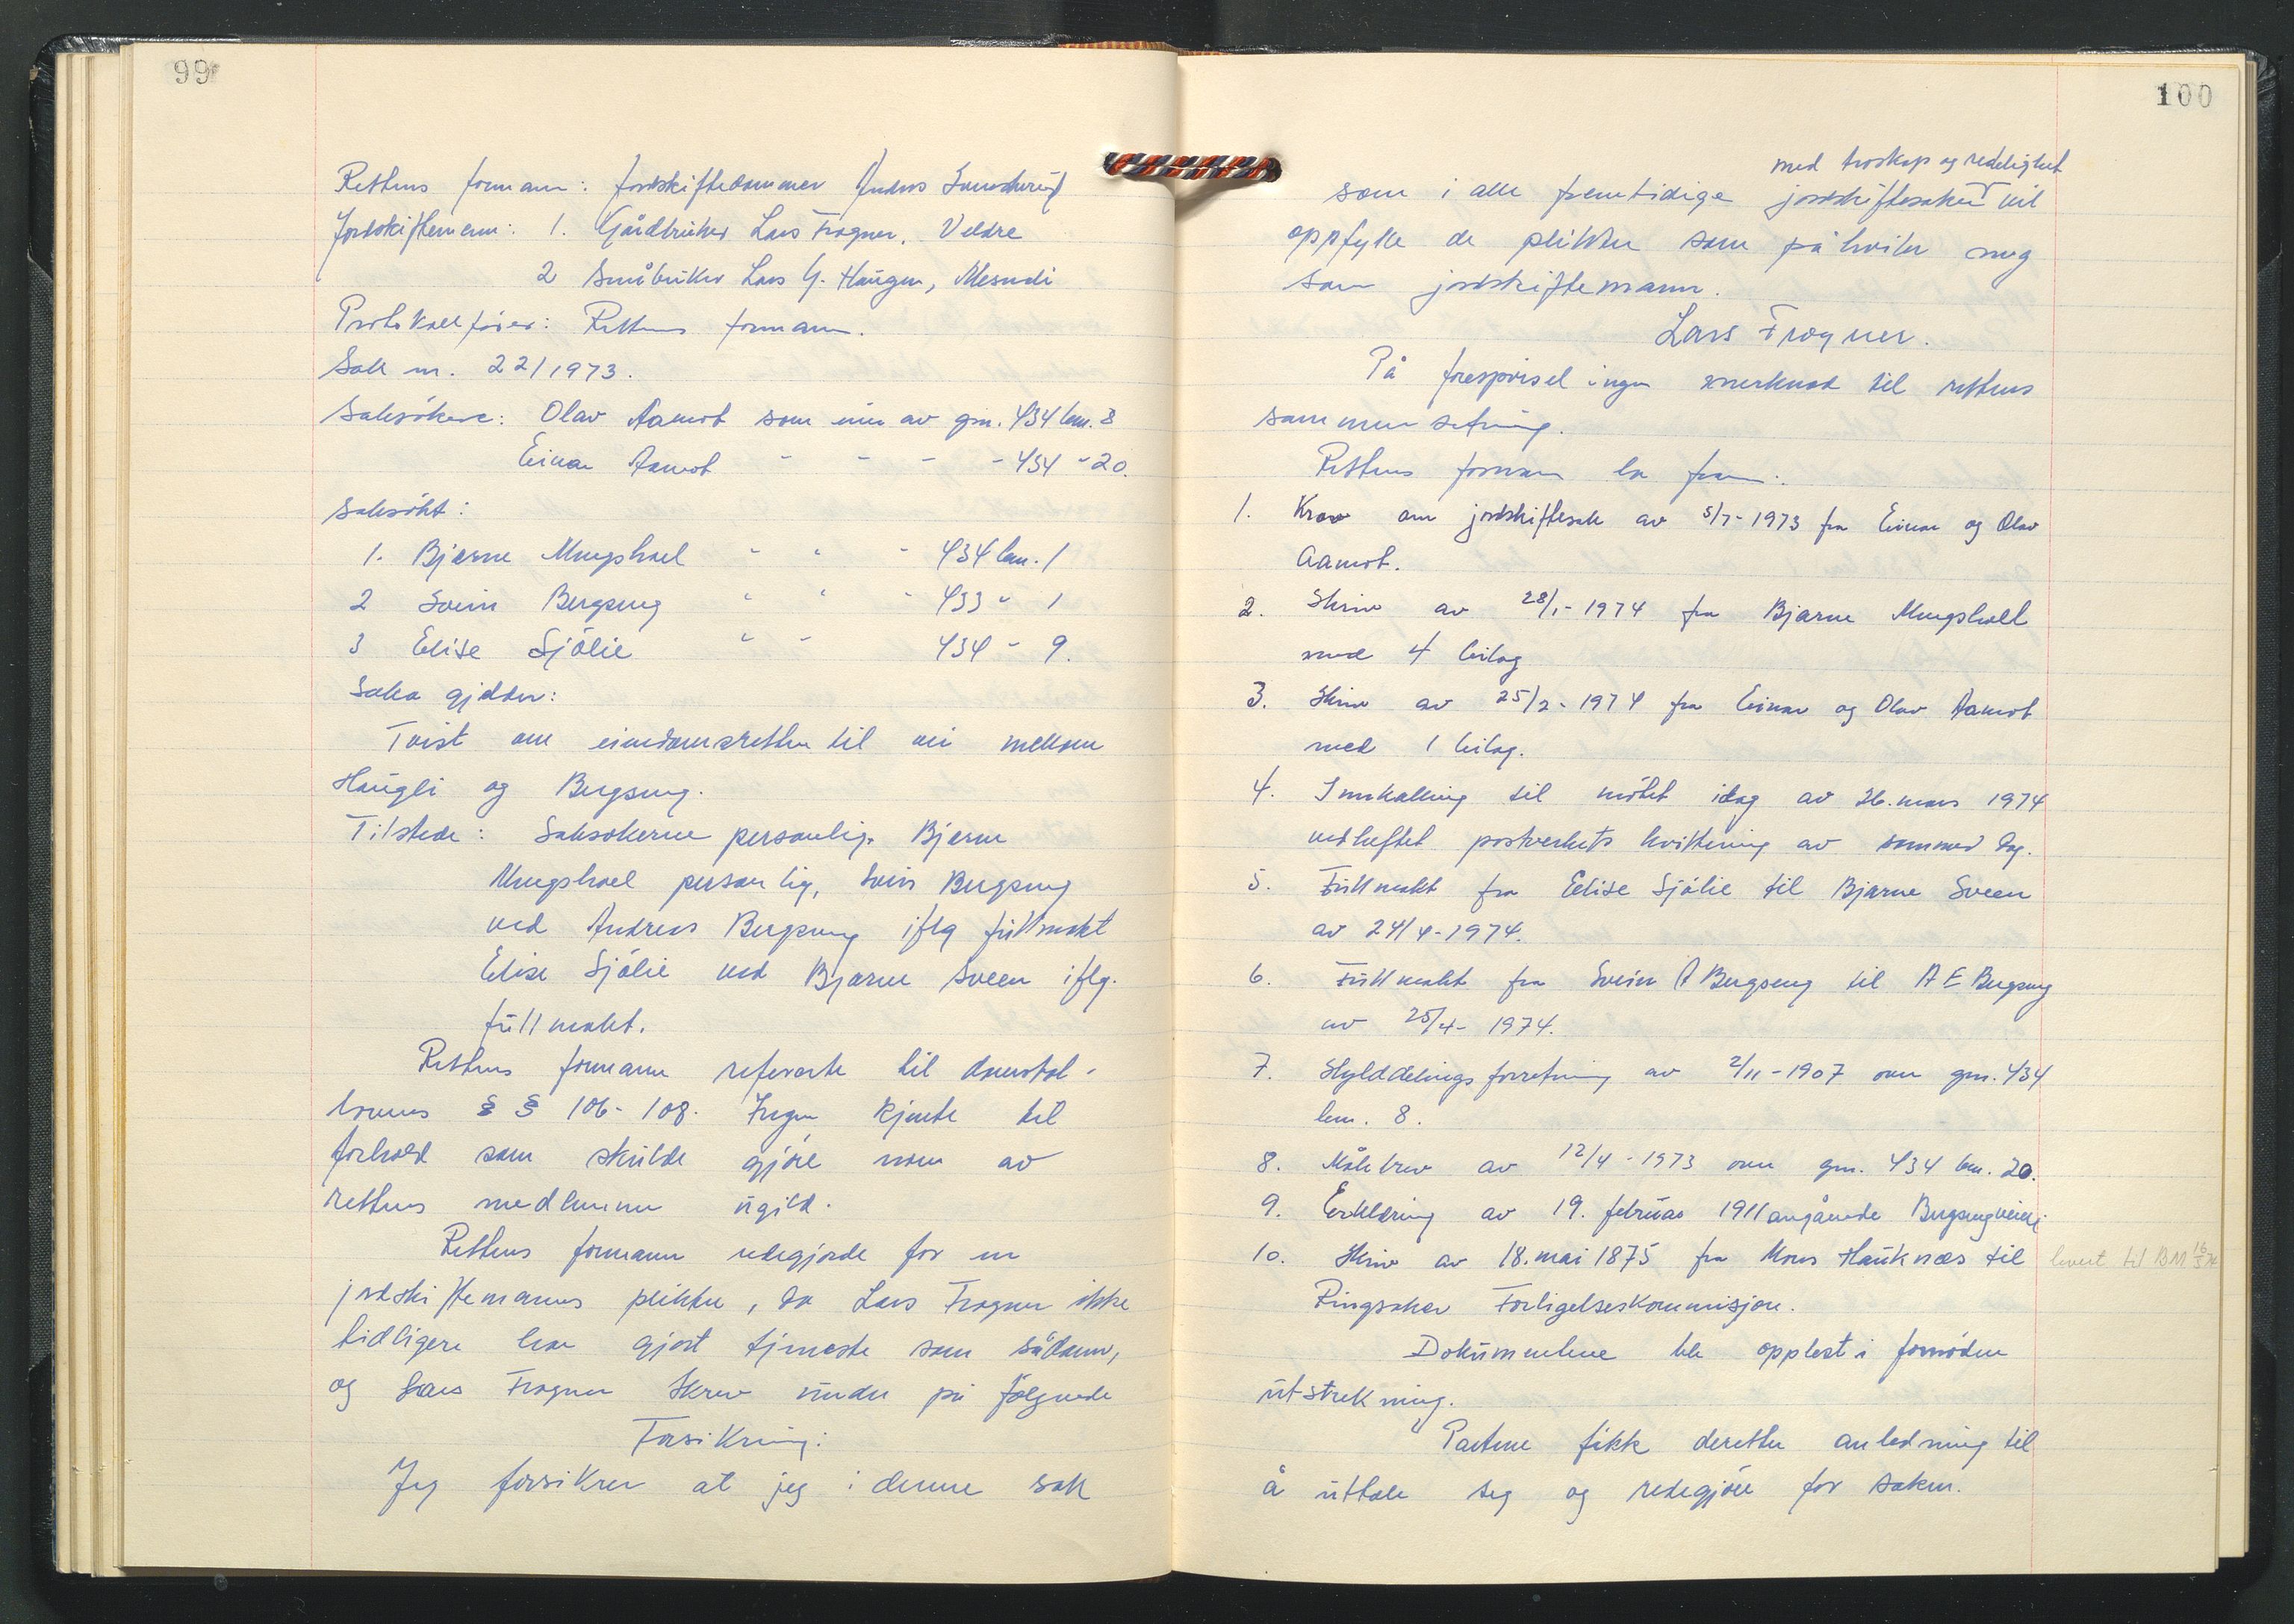 99
Rettens formann: Jordskiftedommer Anders
Jordskiftemenn: 1. Gårdbruker Lars Frogner, Veldre
2 Småbruker Lars G. Haugen, Mesnali
Protokollfører: Rettens formann.
Sak nr. 22/1973.
Saksøkere: Olav Aamot som eier av gnr. 434 bnr. 8
Einar Aamot " - - - 434 " 20.
Saksøkt:
1. Bjarne Mengshoel " " " 434 bnr. 1
2 Svein Bergseng " " " 433 " 1
3 Elise Sjølie " " 434 " 9.
Saka gjelder:
Tvist om eiendomsretten til vei mellom
Haugli og Bergseng.
Tilstede: Saksøkerne personlig. Bjarne
Mengshoel personlig, Svein Bergseng
ved Andreas Bergseng iflg fullmakt
Elise Sjølie ved Bjarne Sveen iflg.
fullmakt.
Rettens formann refererte til domstol-
lovens § § 106-108. Ingen kjente til
forhold som skulde gjøre noen av
rettens medlemmer ugild.
Rettens formann redegjorde for en
jordskiftemanns plikter, da Lars Frogner ikke
tidligere har gjort tjeneste som sådann,
og Lars Frogner skrev under på følgende
Forsikring:
Jeg forsikrer at jeg i denne sak
100
med troskap og redelighet
som i alle fremtidige jordskiftesaker vil
oppfylle de plikter som påhviler meg
som jordskiftemann.
Lars Frogner.
På forespørsel ingen merknad til rettens
sammensetning.
Rettens formann la fram:
1. Krav om jordskiftesak av 5/7-1973 fra Einar og Olav
Aamot.
2. Skriv av 28/1-1974 fra Bjarne Mengshoel
med 4 bilag
3. Skriv av 25/2-1974 fra Einar og Olav Aamot
med 1 bilag.
4. Innkalling til møtet idag av 26. mars 1974
vedheftet postverkets kvittering av sammed dag.
5. Fullmakt fra Elise Sjølie til Bjarne Sveen
av 24/4-1974.
6. Fullmakt fra Svein A Bergseng til A E Bergseng
av 25/4-1974.
7. Skylddelingsforretning av 2/11-1907 over gnr. 434
bnr. 8.
8. Målebrev av 12/4-1973 over gnr. 434 bnr. 20.
9. Erklæring av 19. februar 1911 angående Bergsengveien
10. Skriv av 18. mai 1875 fra Mons Hauknæs til levert til BM 16/5 74
Ringsaker Forligelseskommisjon.
Dokumentene ble opplest i fornøden
utstrekning.
Partene fikk deretter anledning til
å uttale seg og redegjøre for saken.